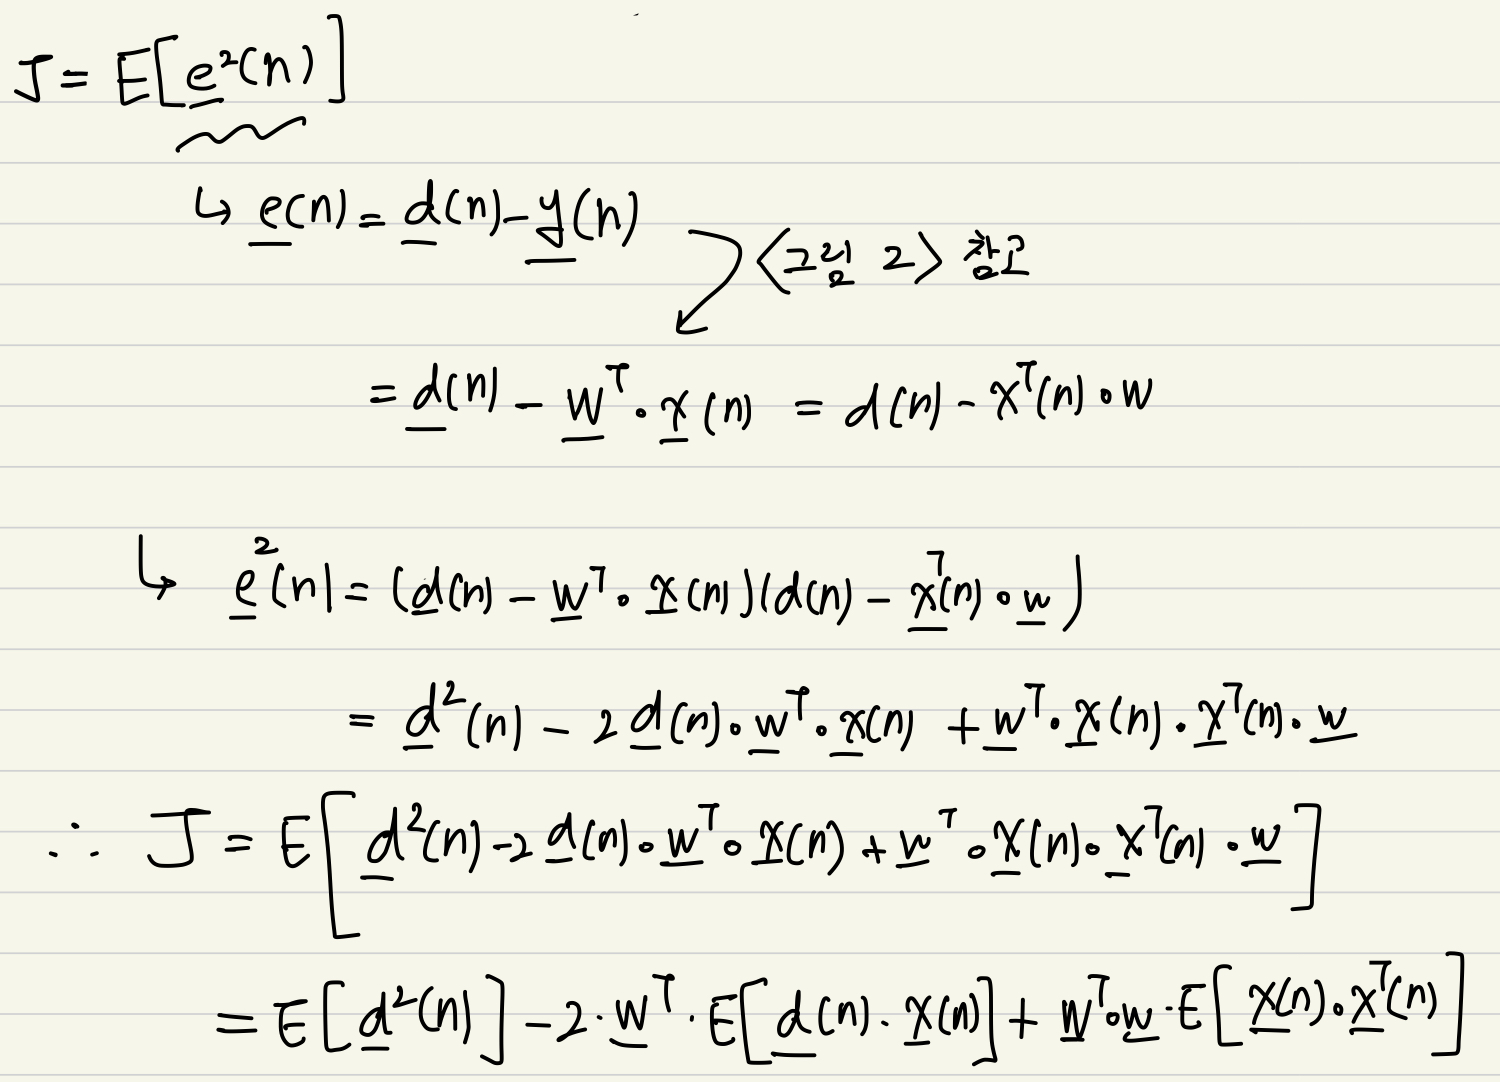 J = E[e²(n)]
↳ e(n) = d(n) - y(n)
<그림 2> 참고
= d(n) - w^T · x(n) = d(n) - x^T(n) · w
↳ e²(n) = (d(n) - w^T · x(n))(d(n) - x^T(n) · w)
= d²(n) - 2d(n) · w^T · x(n) + w^T · x(n) · x^T(n) · w
∴ J = E[d²(n) - 2d(n) · w^T · x(n) + w^T · x(n) · x^T(n) · w]
= E[d²(n)] - 2 · w^T · E[d(n) · x(n)] + w^T · w · E[x(n) · x^T(n)]